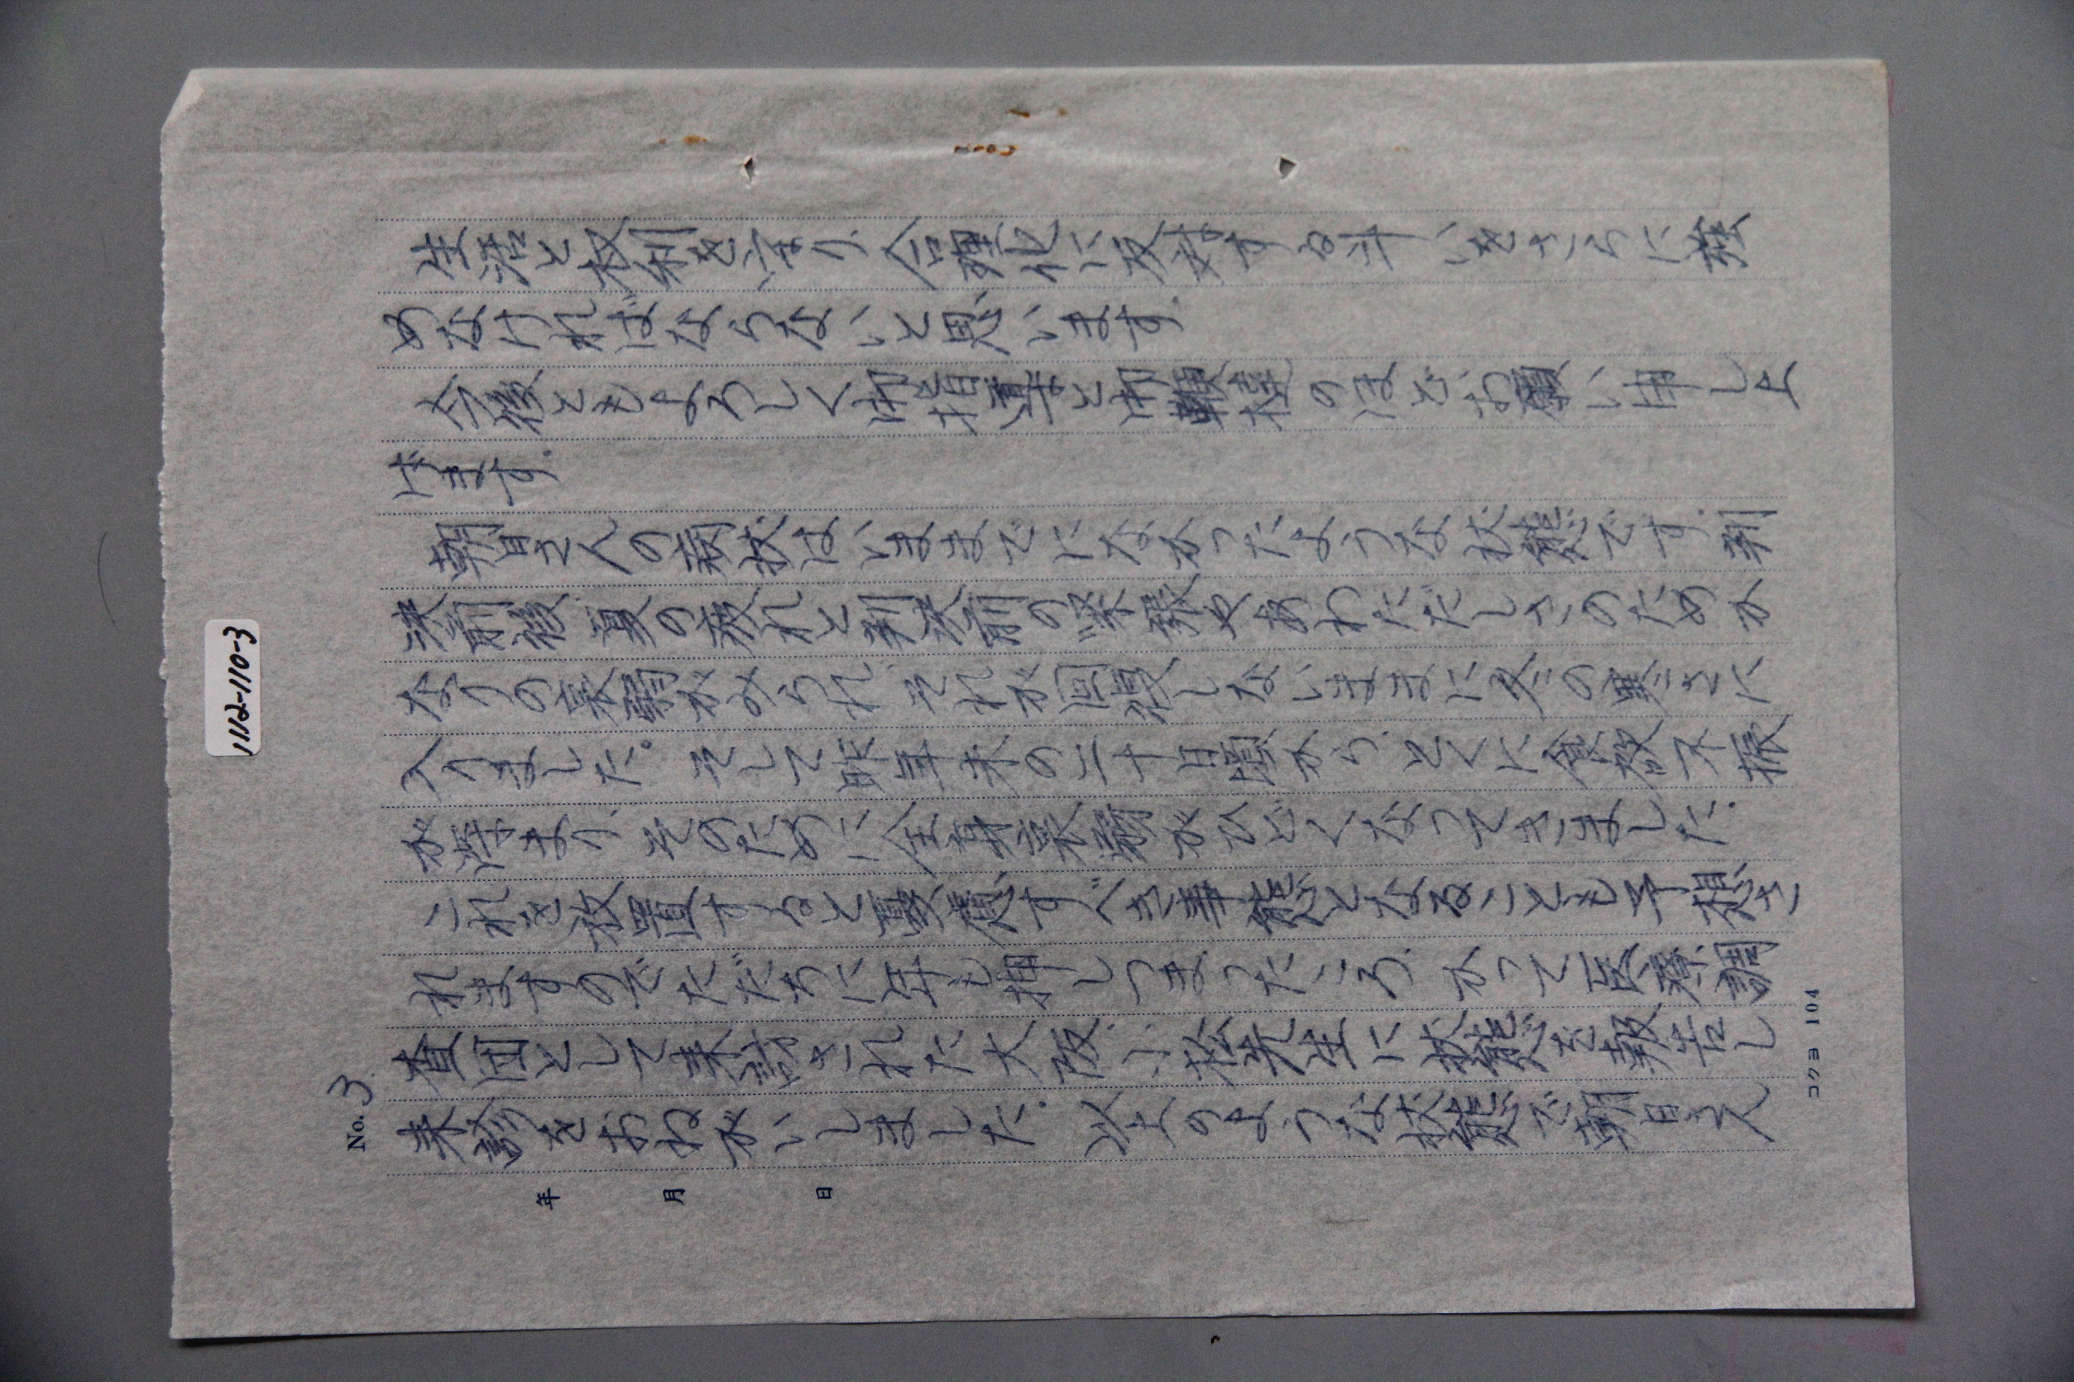 No. 3
年 月 日
生活と権利を守り、合理化に反対する斗いをさらに強
めなければならないと思います。
今後ともよろしく御指導と御鞭撻のほどお願い申し上
げます。
朝日さんの病状はいままでになかったような状態です。判
決前後、夏の疲れと判決前の緊張やあわただしさのためか
なりの衰弱がみられ、それが回復しないままに冬の寒さに
入りました。そして昨年末の二十日頃から、とくに食欲不振
が始まり、そのために全身衰弱がひどくなってきました。
これを放置すると憂慮すべき事態となることも予想さ
れますのでただちに手も打ってまいったころ、かつて医療調
査団として来訪された大阪、小松先生に状態を報告し
来診をおねがいしました。以上のような状態で朝日さん
コクヨ 104
1112-110-3